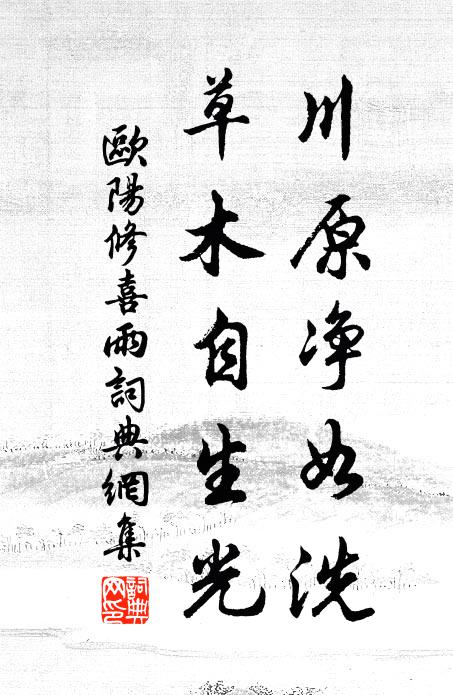 川原净如洗
草木自生光
歐陽修喜雨詞典網集
詞典網印